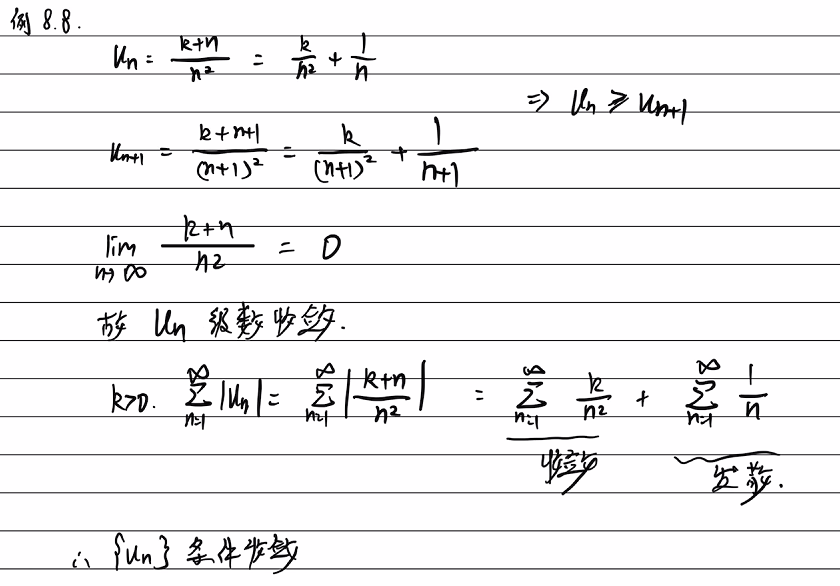 例 8.8.
Un = (k+n)/n² = k/n² + 1/n
⇒ Un ≥ Un+1
Un+1 = (k+n+1)/(n+1)² = k/(n+1)² + 1/(n+1)
lim n→∞ (k+n)/n² = 0
故 Un 级数收敛.
k>0. ∑_{n=1}^{∞} |Un| = ∑_{n=1}^{∞} |(k+n)/n²| = ∑_{n=1}^{∞} k/n² + ∑_{n=1}^{∞} 1/n
收敛 发散.
∴ {Un} 条件收敛